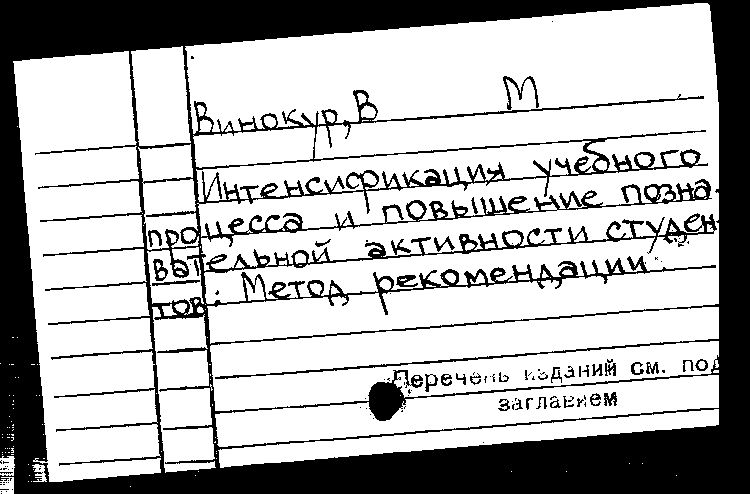 Винокур, В М
Интенсификация учебного
процесса и повышение позна-
вательной активности студен-
тов: Метод. рекомендации.
Перечень изданий см. под
заглавием